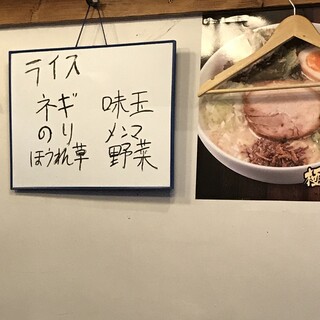 ライス
ネギ 味玉
のり メンマ
ほうれん草 野菜
極